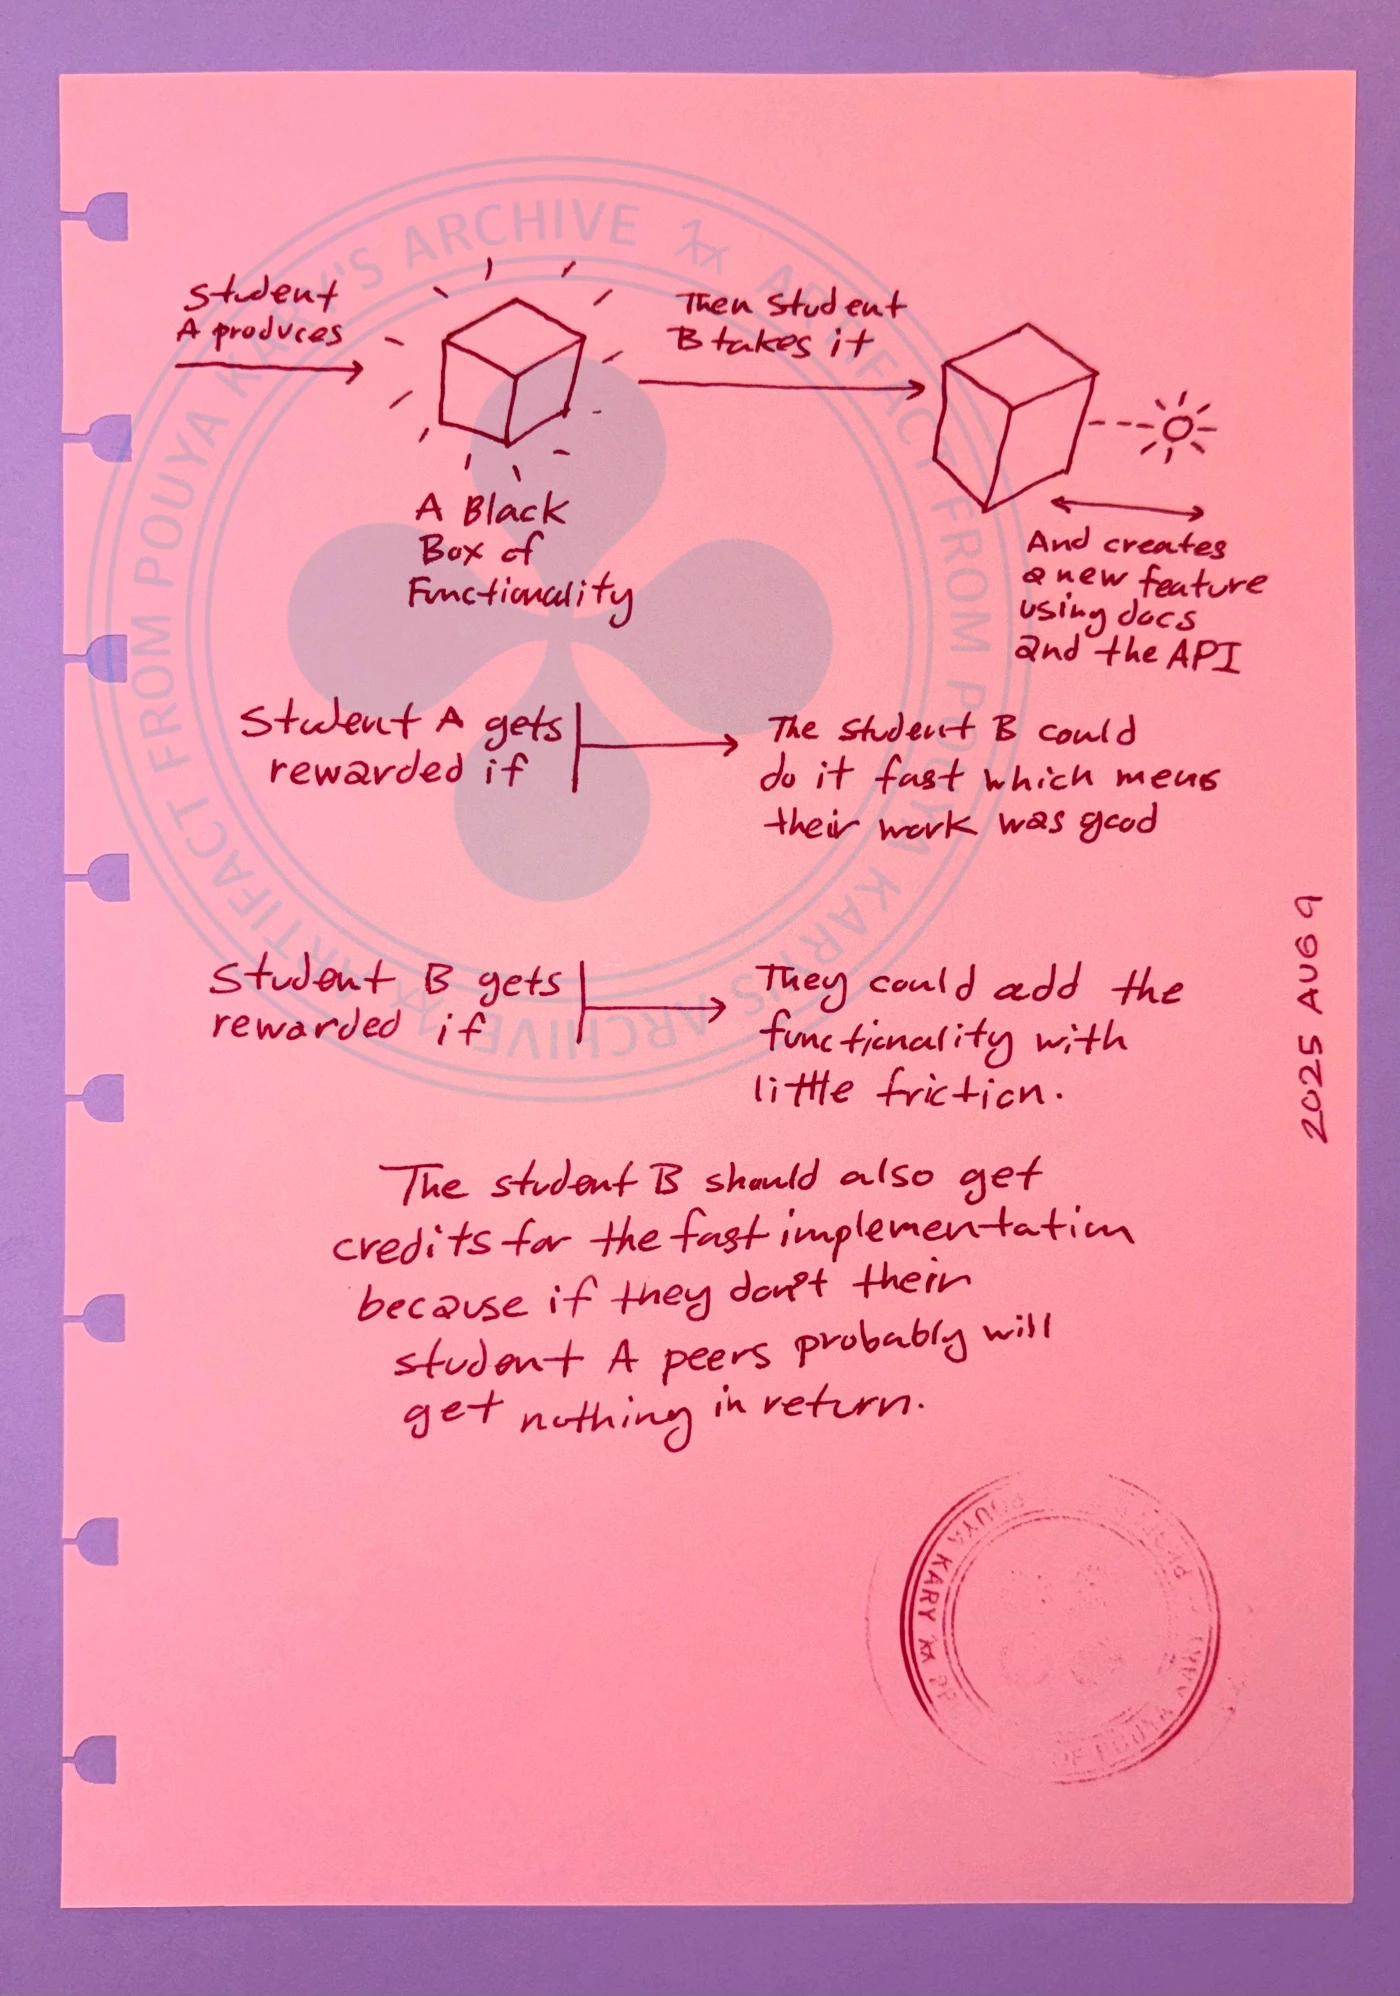 Student
A produces
Then Student
B takes it
A Black
Box of
Functionality
And creates
a new feature
using docs
and the API
Student A gets
rewarded if
The student B could
do it fast which mens
their work was good
Student B gets
rewarded if
They could add the
functionality with
little friction.
The student B should also get
credits for the fast implementation
because if they don't their
student A peers probably will
get nothing in return.
2025 AUG 9
ARTIFACT FROM POUYA KARY'S ARCHIVE
ARTIFACT FROM POUYA KARY'S ARCHIVE
POUYA KARY
OF POUYA KARY